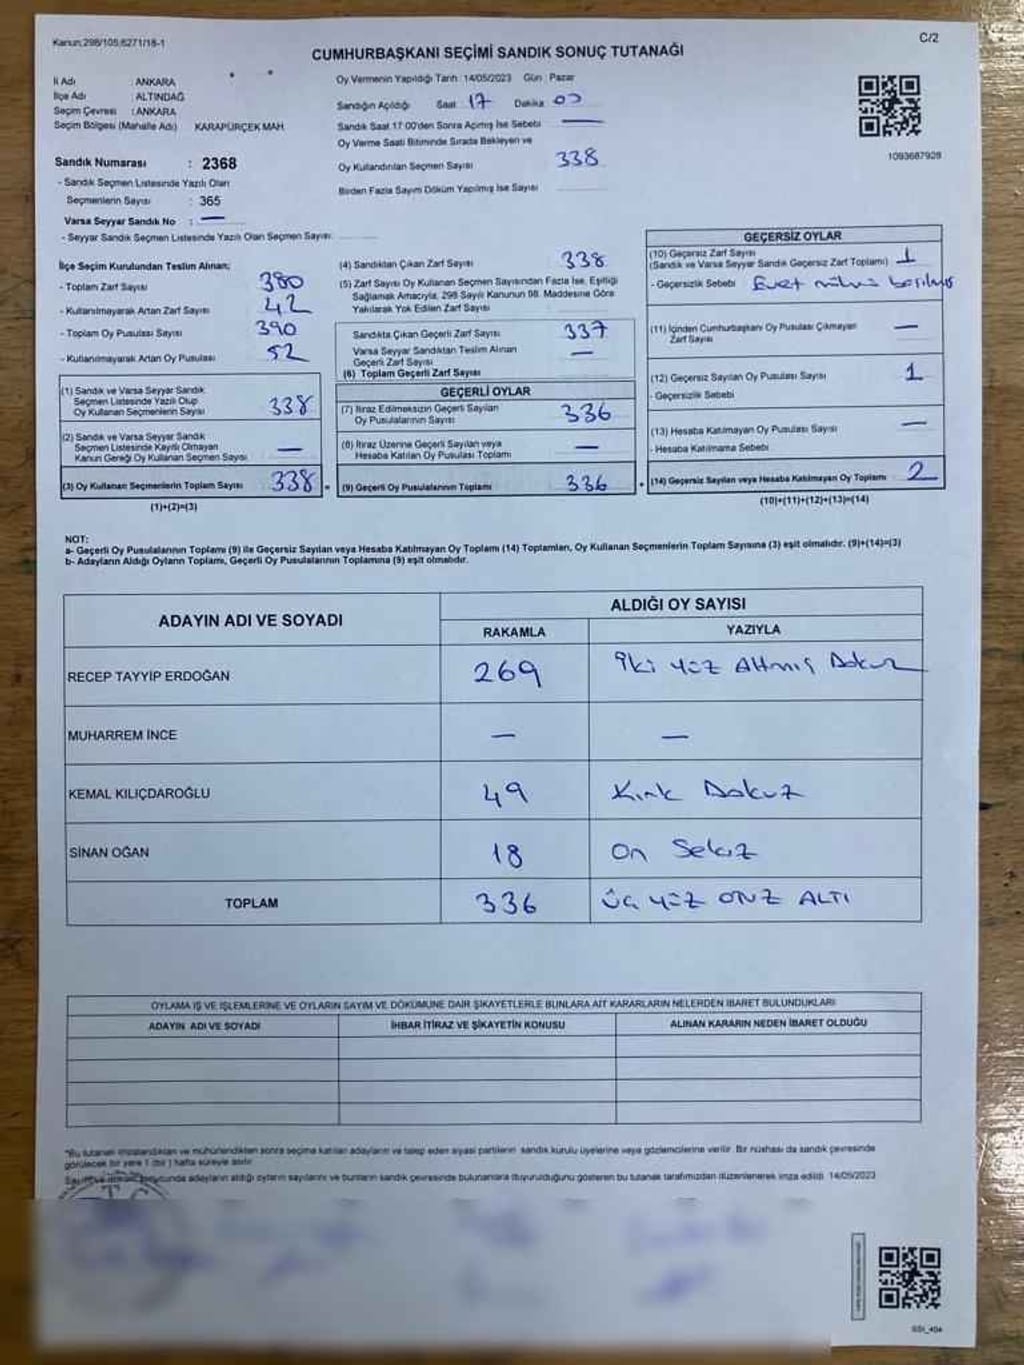 Kanun:298/105;6271/18-1
C/2
CUMHURBAŞKANI SEÇİMİ SANDIK SONUÇ TUTANAĞI
İl Adı : ANKARA
İlçe Adı : ALTINDAĞ
Seçim Çevresi : ANKARA
Seçim Bölgesi (Mahalle Adı) KARAPÜRÇEK MAH
Sandık Numarası : 2368
- Sandık Seçmen Listesinde Yazılı Olan
Seçmenlerin Sayısı : 365
Varsa Seyyar Sandık No : —
- Seyyar Sandık Seçmen Listesinde Yazılı Olan Seçmen Sayısı:
Oy Vermenin Yapıldığı Tarih :14/05/2023 Gün : Pazar
Sandığın Açıldığı Saat : 17 Dakika :
Sandık Saat 17:00'den Sonra Açılmış İse Sebebi —
Oy Verme Saati Bitiminde Sırada Bekleyen ve
Oy Kullandırılan Seçmen Sayısı 338
Birden Fazla Sayım Döküm Yapılmış İse Sayısı
1093687928
İlçe Seçim Kurulundan Teslim Alınan;
- Toplam Zarf Sayısı 380
- Kullanılmayarak Artan Zarf Sayısı 42
- Toplam Oy Pusulası Sayısı 390
- Kullanılmayarak Artan Oy Pusulası 52
(1) Sandık ve Varsa Seyyar Sandık
Seçmen Listesinde Yazılı Olup
Oy Kullanan Seçmenlerin Sayısı 338
(2) Sandık ve Varsa Seyyar Sandık
Seçmen Listesinde Kayıtlı Olmayan
Kanun Gereği Oy Kullanan Seçmen Sayısı —
(3) Oy Kullanan Seçmenlerin Toplam Sayısı 338 =
(1)+(2)=(3)
(4) Sandıktan Çıkan Zarf Sayısı 338
(5) Zarf Sayısı Oy Kullanan Seçmen Sayısından Fazla İse, Eşitliği
Sağlamak Amacıyla, 298 Sayılı Kanunun 98. Maddesine Göre
Yakılarak Yok Edilen Zarf Sayısı
Sandıkta Çıkan Geçerli Zarf Sayısı 337
Varsa Seyyar Sandıktan Teslim Alınan
Geçerli Zarf Sayısı —
(6) Toplam Geçerli Zarf Sayısı
GEÇERLİ OYLAR
(7) İtiraz Edilmeksizin Geçerli Sayılan
Oy Pusulalarının Sayısı 336
(8) İtiraz Üzerine Geçerli Sayılan veya
Hesaba Katılan Oy Pusulası Toplamı —
(9) Geçerli Oy Pusulalarının Toplamı 336 +
GEÇERSİZ OYLAR
(10) Geçersiz Zarf Sayısı
(Sandık ve Varsa Seyyar Sandık Geçersiz Zarf Toplamı) 1
- Geçersizlik Sebebi Evet
(11) İçinden Cumhurbaşkanı Oy Pusulası Çıkmayan
Zarf Sayısı —
(12) Geçersiz Sayılan Oy Pusulası Sayısı 1
- Geçersizlik Sebebi
(13) Hesaba Katılmayan Oy Pusulası Sayısı —
- Hesaba Katılmama Sebebi
(14) Geçersiz Sayılan veya Hesaba Katılmayan Oy Toplamı 2
(10)+(11)+(12)+(13)=(14)
NOT:
a- Geçerli Oy Pusulalarının Toplamı (9) ile Geçersiz Sayılan veya Hesaba Katılmayan Oy Toplamı (14) Toplamları, Oy Kullanan Seçmenlerin Toplam Sayısına (3) eşit olmalıdır. (9)+(14)=(3)
b- Adayların Aldığı Oyların Toplamı, Geçerli Oy Pusulalarının Toplamına (9) eşit olmalıdır.
ADAYIN ADI VE SOYADI
ALDIĞI OY SAYISI
RAKAMLA YAZIYLA
RECEP TAYYİP ERDOĞAN 269 iki yüz Altmış Dokuz
MUHARREM İNCE — —
KEMAL KILIÇDAROĞLU 49 Kırk Dokuz
SİNAN OĞAN 18 On Sekiz
TOPLAM 336 üç yüz OTUZ ALTI
OYLAMA İŞ VE İŞLEMLERİNE VE OYLARIN SAYIM VE DÖKÜMÜNE DAİR ŞİKAYETLERLE BUNLARA AİT KARARLARIN NELERDEN İBARET BULUNDUKLARI
ADAYIN ADI VE SOYADI İHBAR İTİRAZ VE ŞİKAYETİN KONUSU ALINAN KARARIN NEDEN İBARET OLDUĞU
*Bu tutanak imzalandıktan ve mühürlendikten sonra seçime katılan adayların ve talep eden siyasi partilerin sandık kurulu üyelerine veya gözlemcilerine verilir. Bir nüshası da sandık çevresinde
görülecek bir yere 1 (bir) hafta süreyle asılır.
sonucunda adayların aldığı oyların sayılarını ve bunların sandık çevresinde bulunanlara duyurulduğunu gösteren bu tutanak tarafımızdan düzenlenerek imza edildi. 14/05/2023